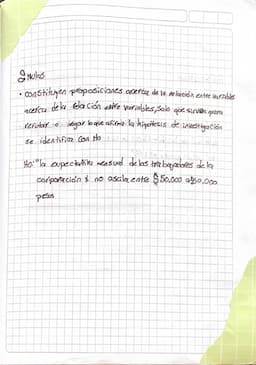 Nulas
• constituyen proposiciones acerca de la relación entre variables
acerca de la relación entre variables, solo que sirven para
refutar o negar lo que afirma la hipótesis de investigación
se identifica con Ho
Ho: "la expectativa mensual de los trabajadores de la
corporación x no oscila entre $50.000 a $60.000
pesos